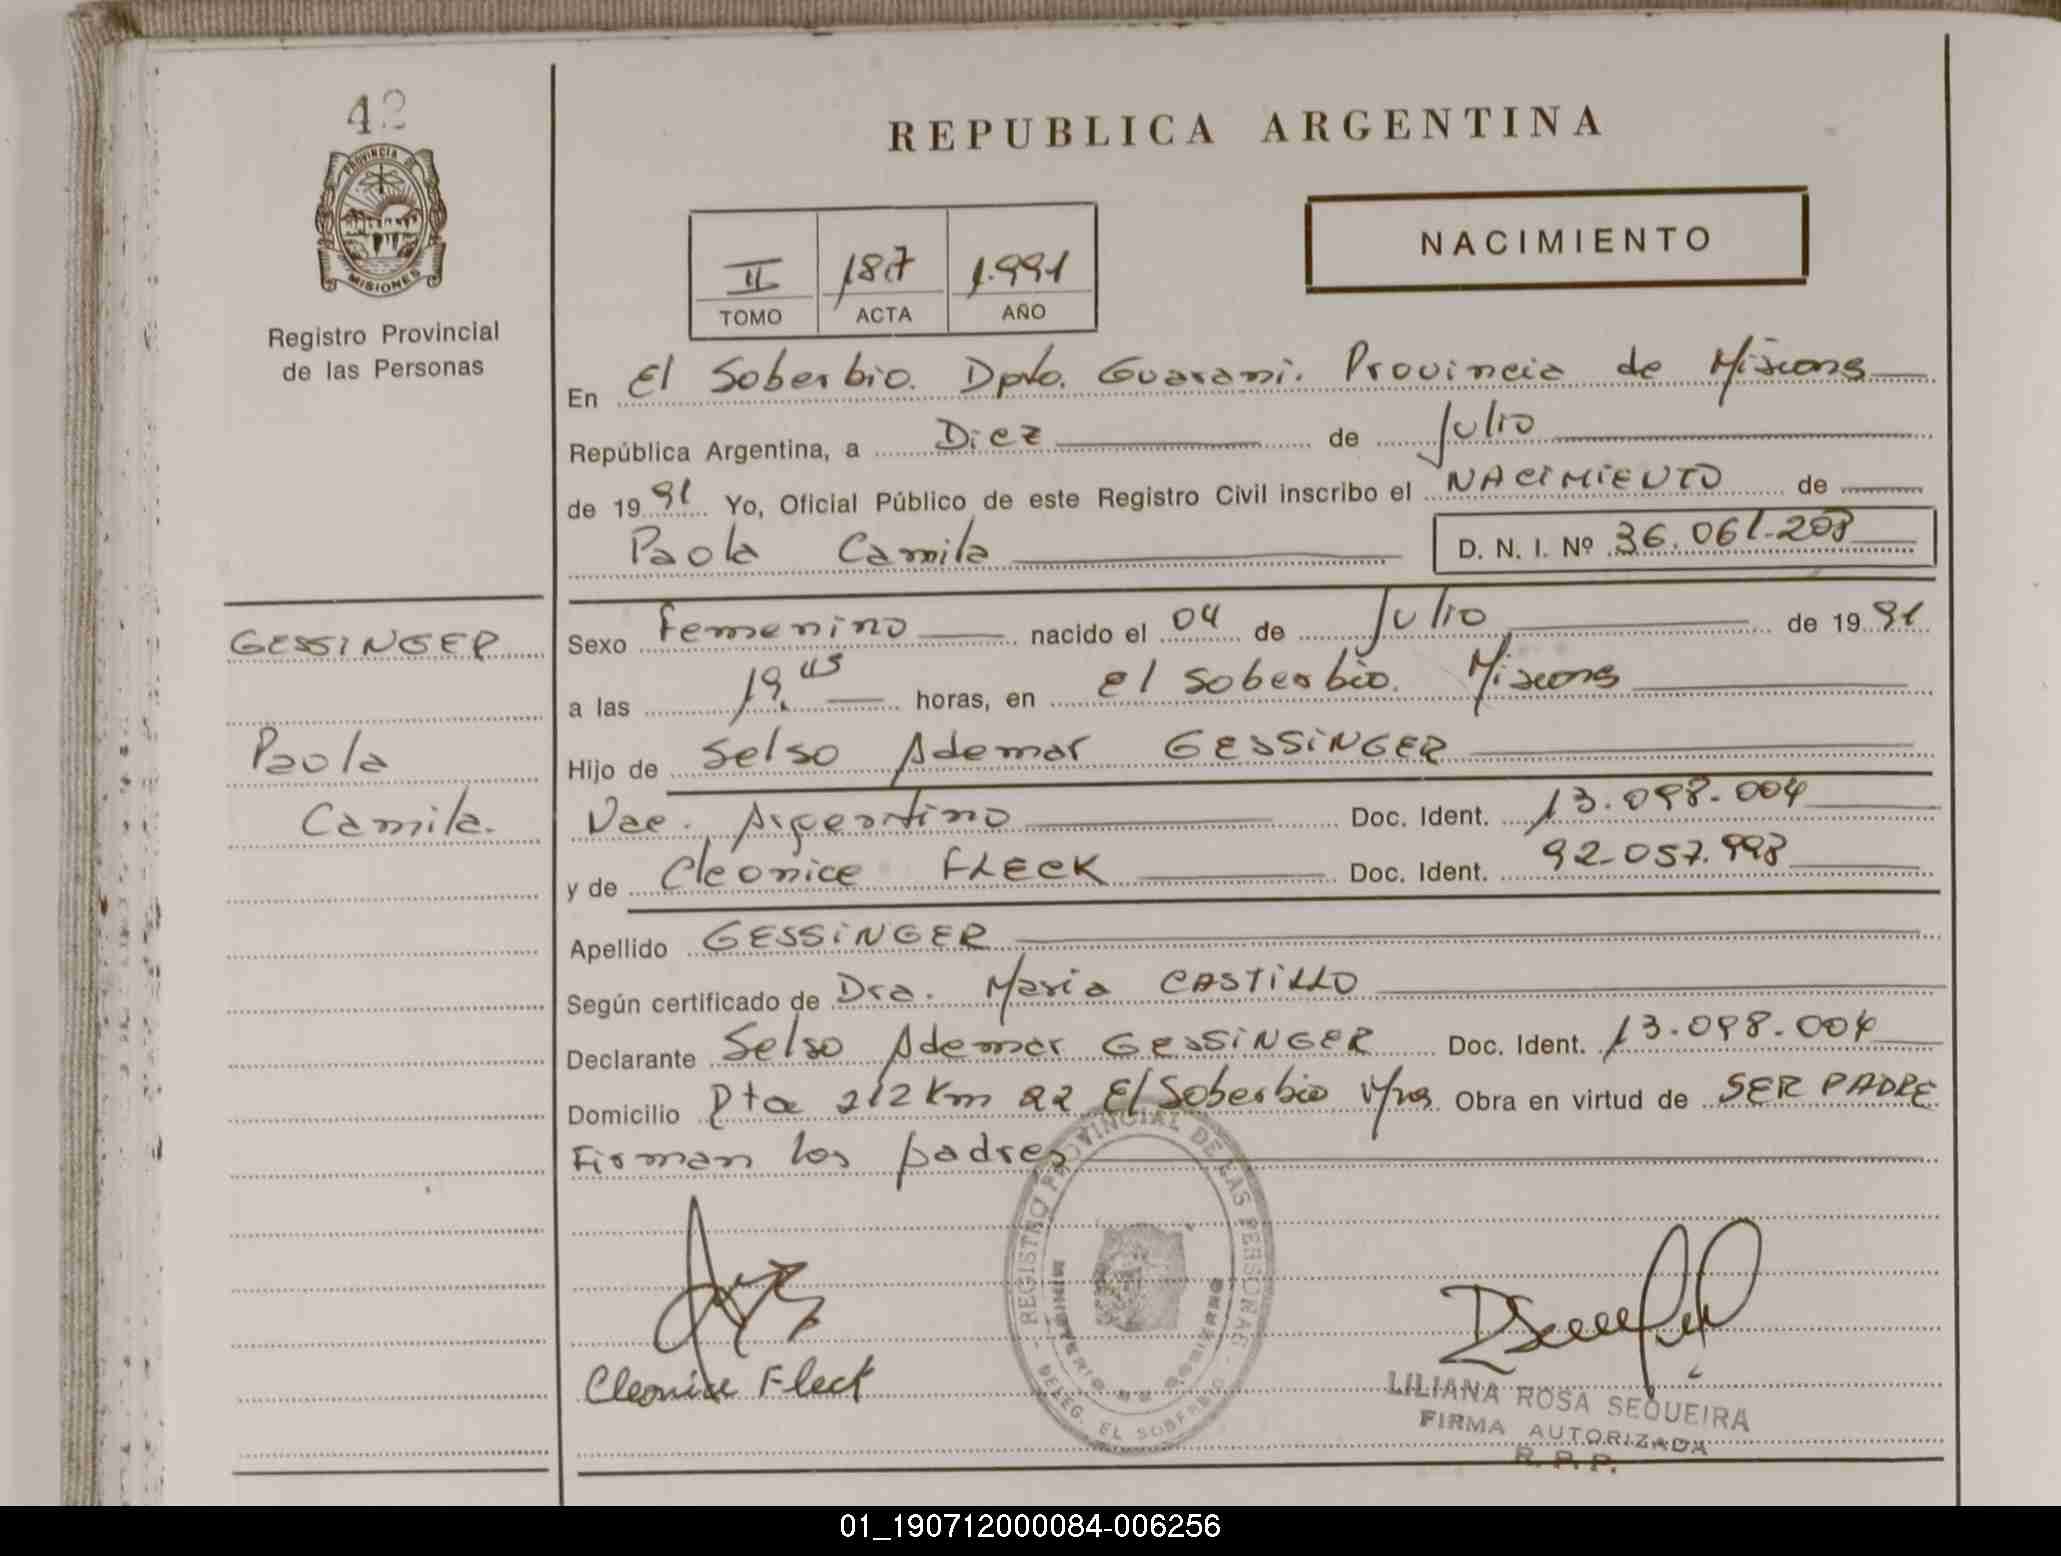 42
PROVINCIA DE
MISIONES
Registro Provincial
de las Personas
GESSINGER
Paola
Camila.
REPUBLICA ARGENTINA
II 187 1.991
TOMO ACTA AÑO
NACIMIENTO
En El Soberbio. Dpto. Guarani. Provincia de Misiones
República Argentina, a Diez de Julio
de 1991 Yo, Oficial Público de este Registro Civil inscribo el NACIMIENTO de
Paola Camila D. N. I. Nº 36.061.203
Sexo Femenino nacido el 04 de Julio de 1991
a las 19.45 horas, en El Soberbio. Misiones
Hijo de Selso Ademar GESSINGER
Nac. Argentino Doc. Ident. 13.098.004
y de Cleonice FLECK Doc. Ident. 92.057.998
Apellido GESSINGER
Según certificado de Dra. Maria CASTILLO
Declarante Selso Ademar GESSINGER Doc. Ident. 13.098.004
Domicilio Rta 212 Km 22 El Soberbio Mnes Obra en virtud de SER PADRE
Firman los padres
REGISTRO PROVINCIAL DE LAS PERSONAS
MINISTERIO DE GOBIERNO
DELEG. EL SOBERBIO
Cleonice Fleck
LILIANA ROSA SEQUEIRA
FIRMA AUTORIZADA
R. P. P.
01_190712000084-006256